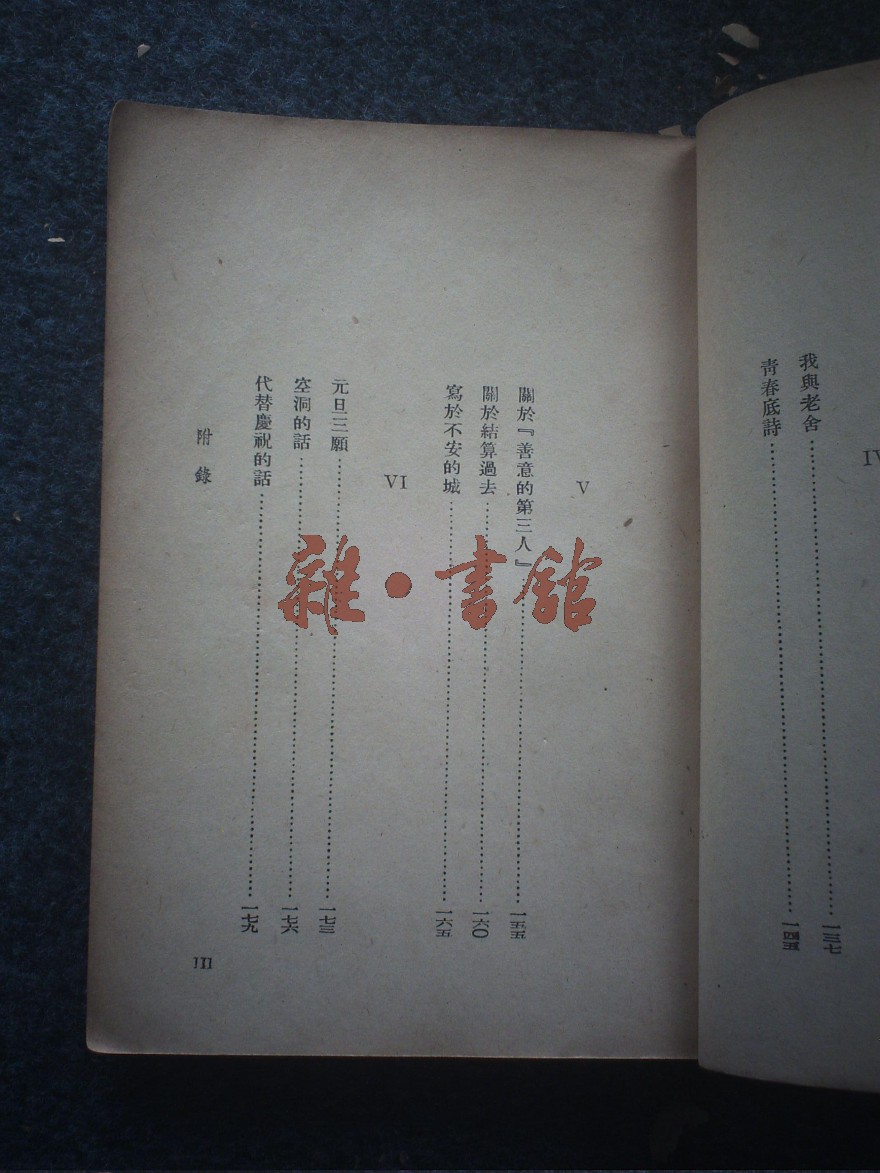 IV
我與老舍……一三七
青春底詩……一四五
V
關於『善意的第三人』……一五五
關於結算過去……一六〇
寫於不安的城……一六五
VI
元旦三願……一七三
空洞的話……一七六
代替慶祝的話……一七九
附錄
III
雜·書館